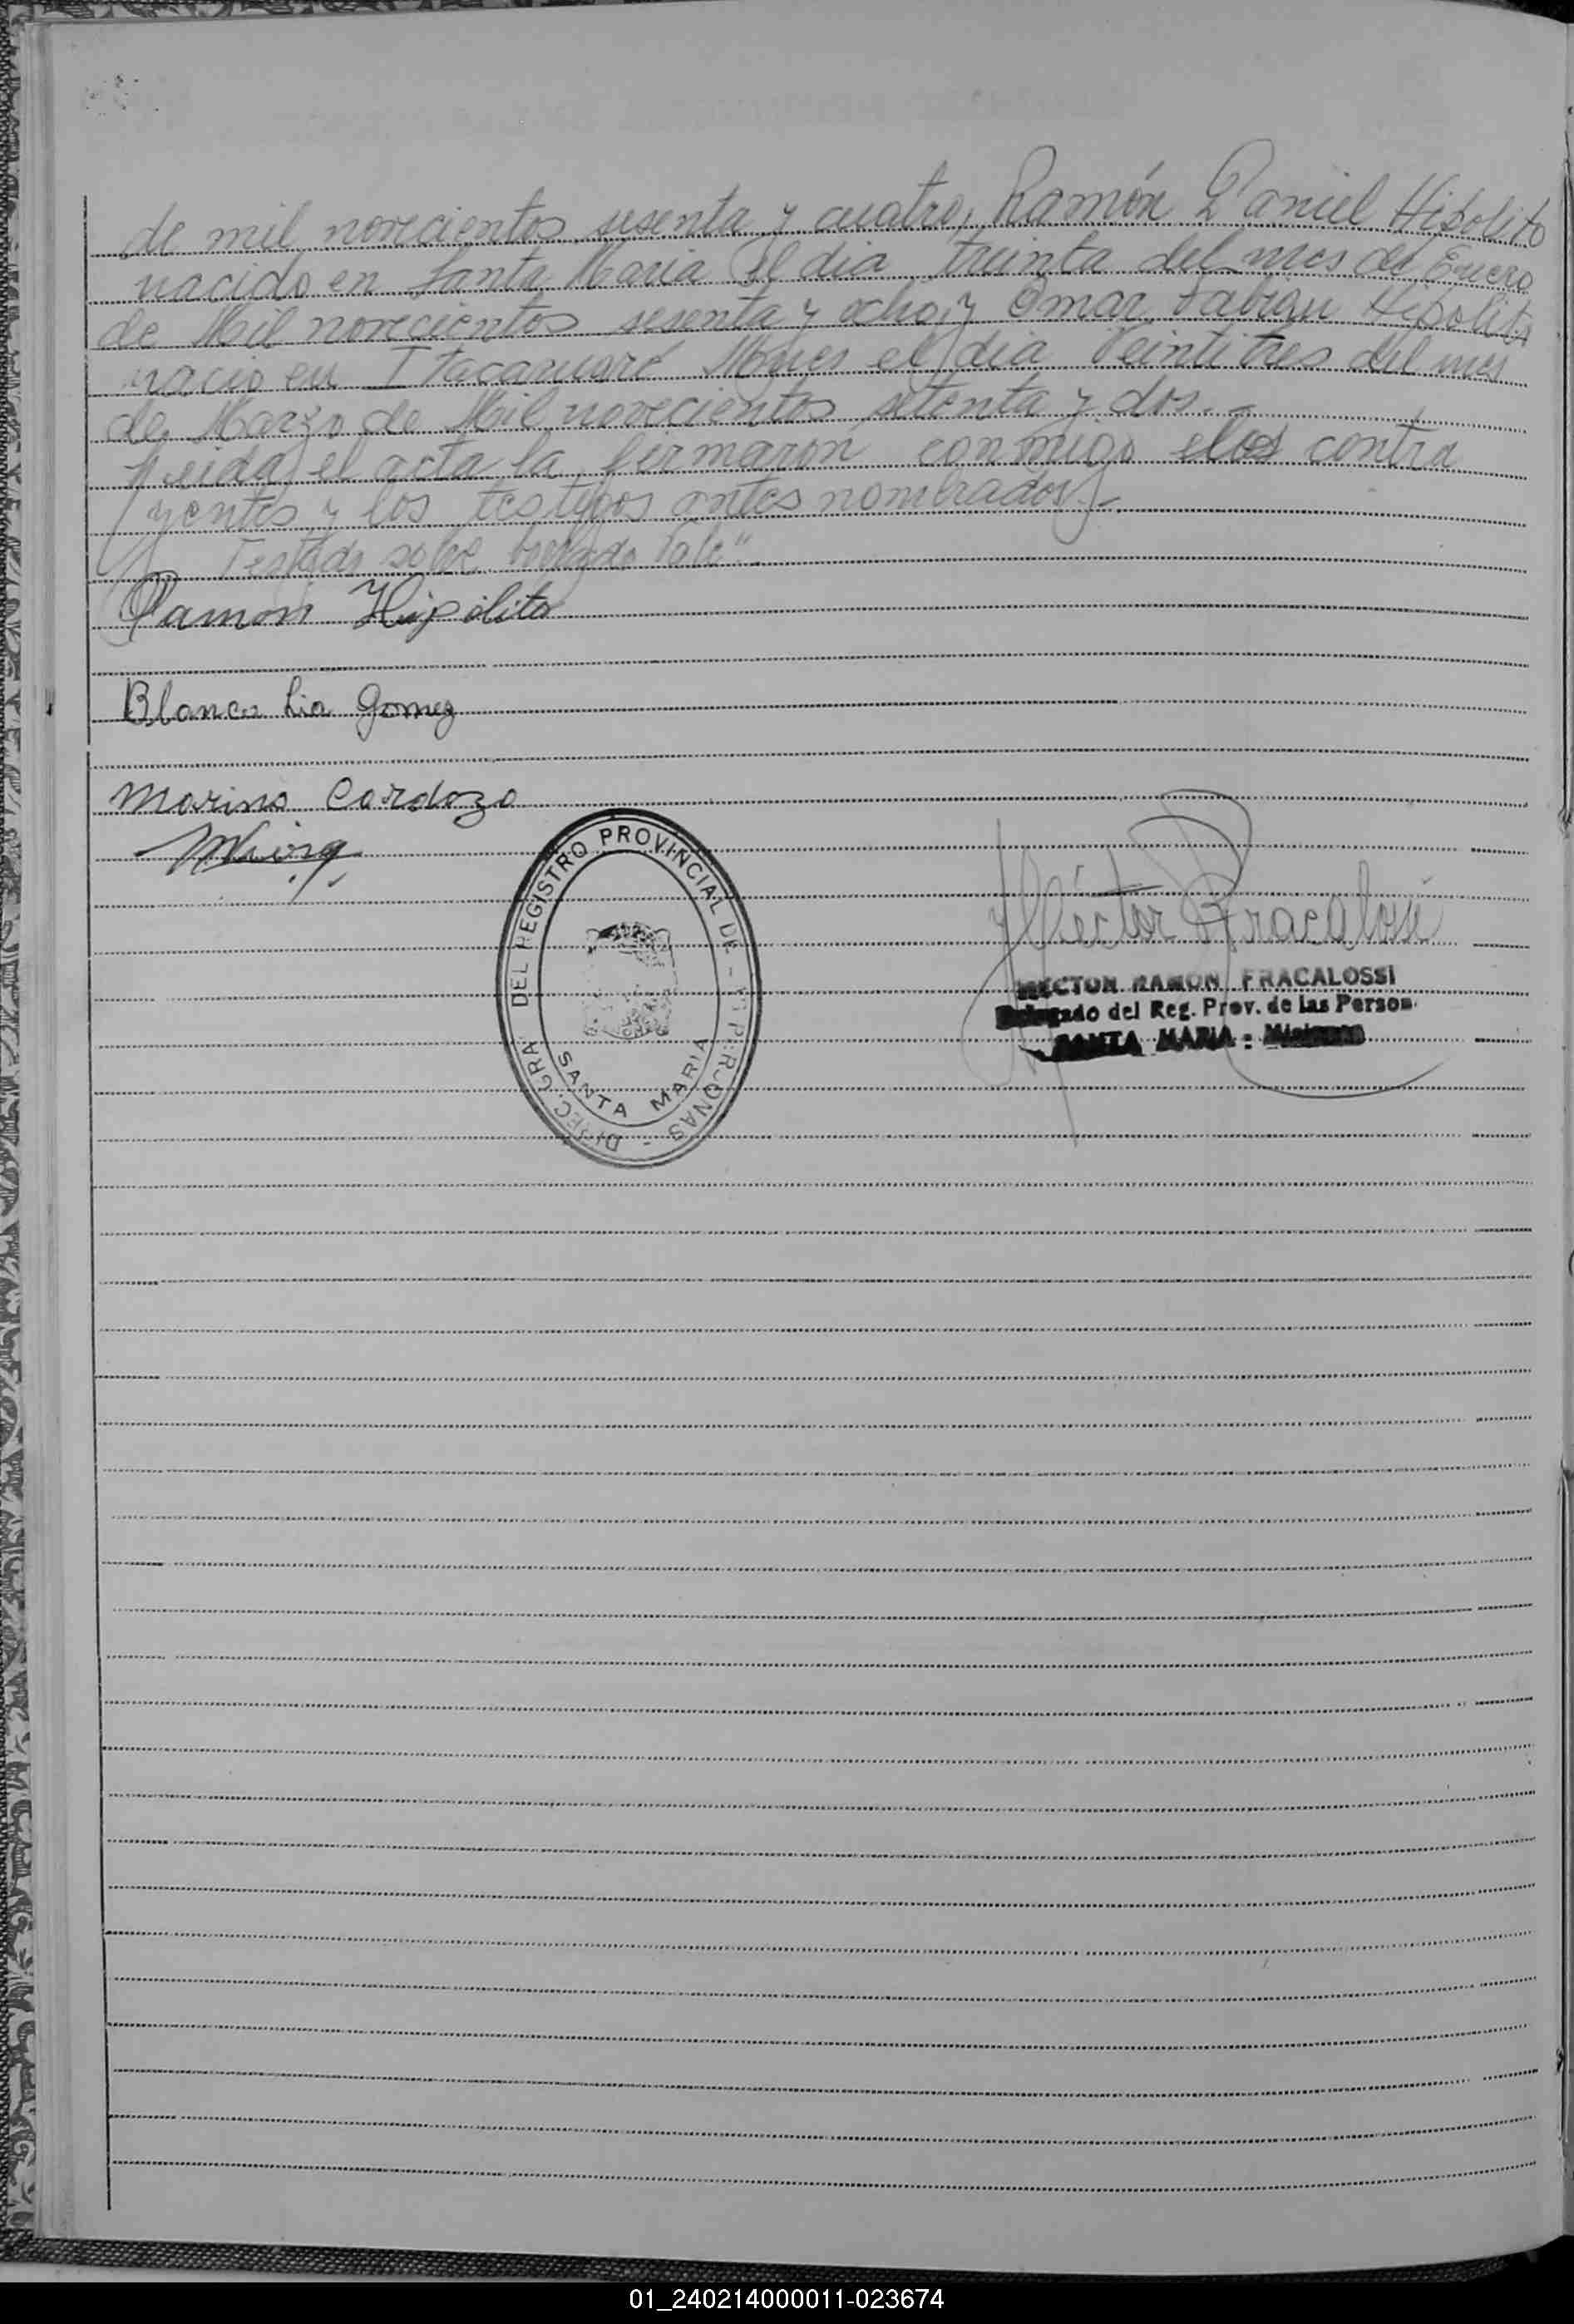 de mil novecientos sesenta y cuatro, Ramón Daniel Hipolito
nacido en Santa Maria el dia treinta del mes de Enero
de Mil novecientos sesenta y ocho, y Omar Fabian Hipolito
nacio en Itacaruaré Mnes el dia Veintitres del mes
de Marzo de Mil novecientos setenta y dos.-
Leida el acta la firmaron conmigo los contra
yentes y los testigos antes nombrados.-
Testado sobre borrado Vale".
Ramon Hipólito
Blanca Lia Gomez
Marina Cardozo
Héctor R Fracalossi
HECTOR RAMON FRACALOSSI
Delegado del Reg. Prov. de las Person.
SANTA MARIA - Misiones
DIREC. GRAL. DEL REGISTRO PROVINCIAL DE LAS PERSONAS -
SANTA MARIA
01_240214000011-023674